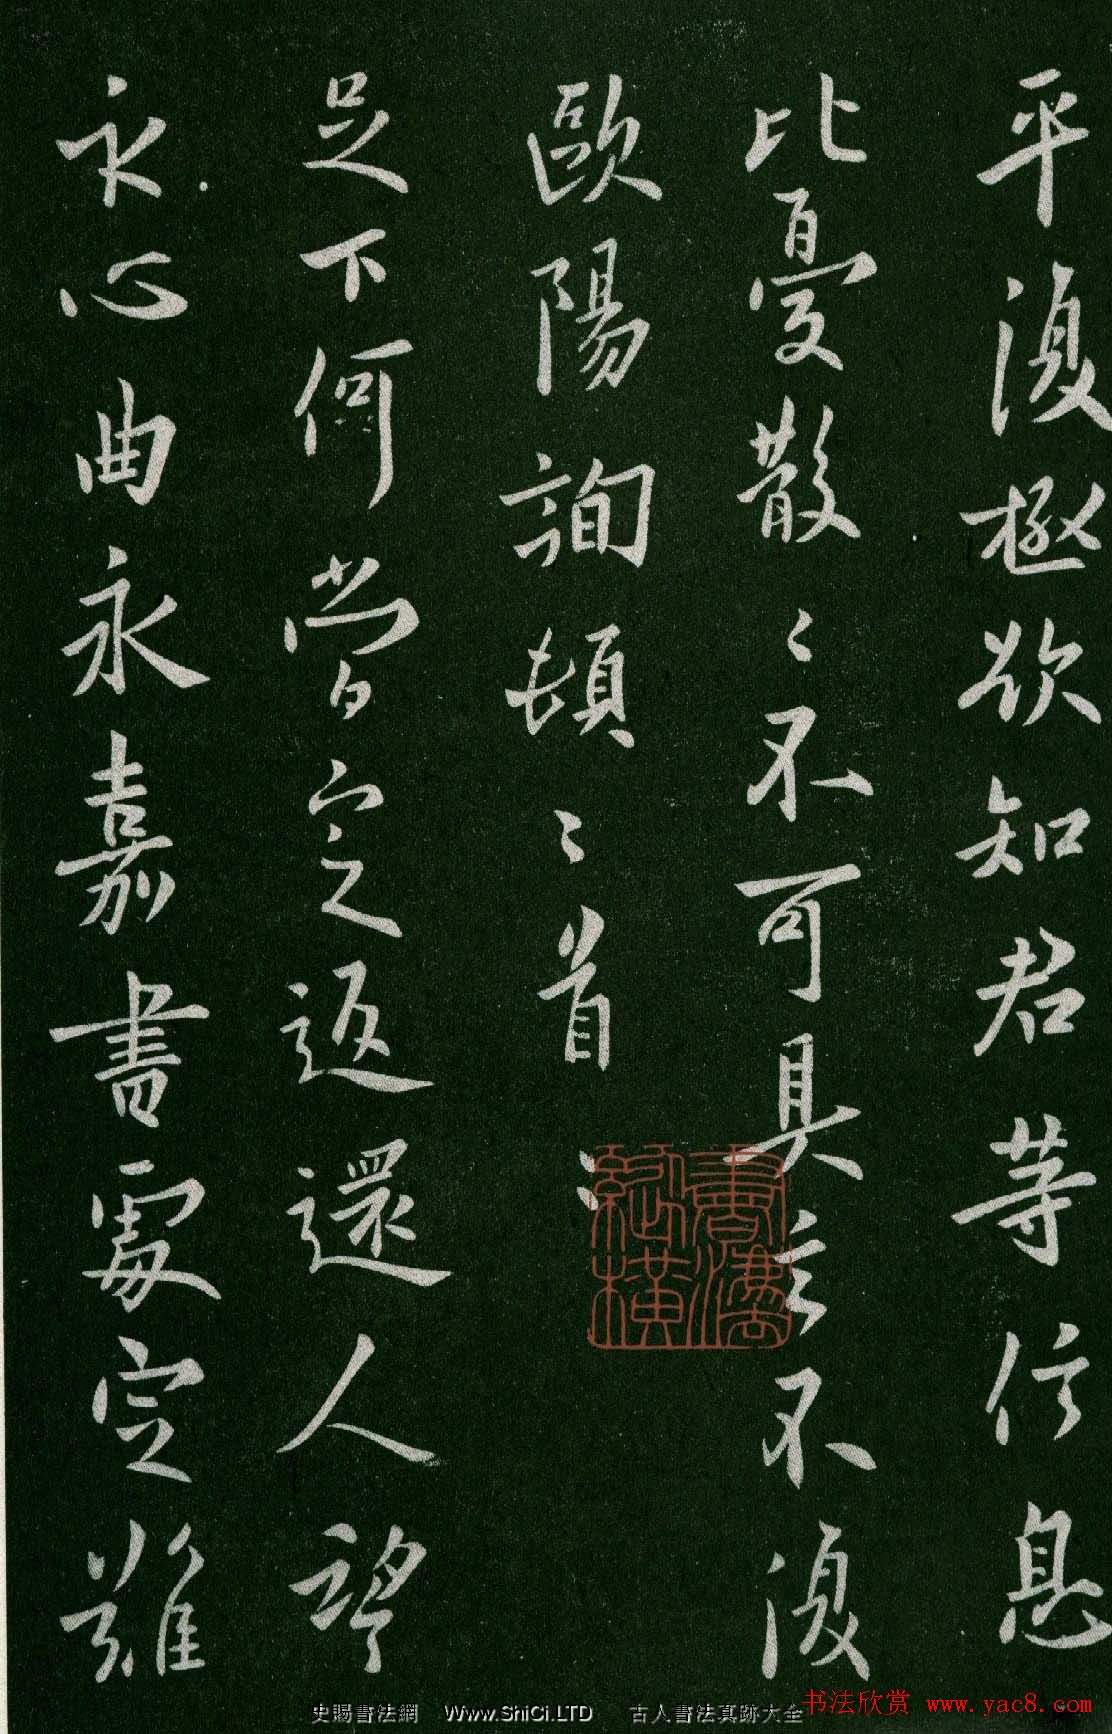 平復極欲知君等信息
比憂散〻不可具言不復
歐陽詢頓〻首〻
足下何當定返還人望
示心曲永嘉書處定難
書灋縱橫
史賜書法網 Www.ShiCi.LTD 古人書法真跡大全
书法欣赏 www.yac8.com